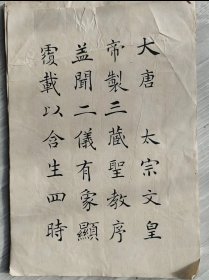 大唐 太宗文皇
帝製三藏聖教序
蓋聞二儀有象顯
覆載以含生四時